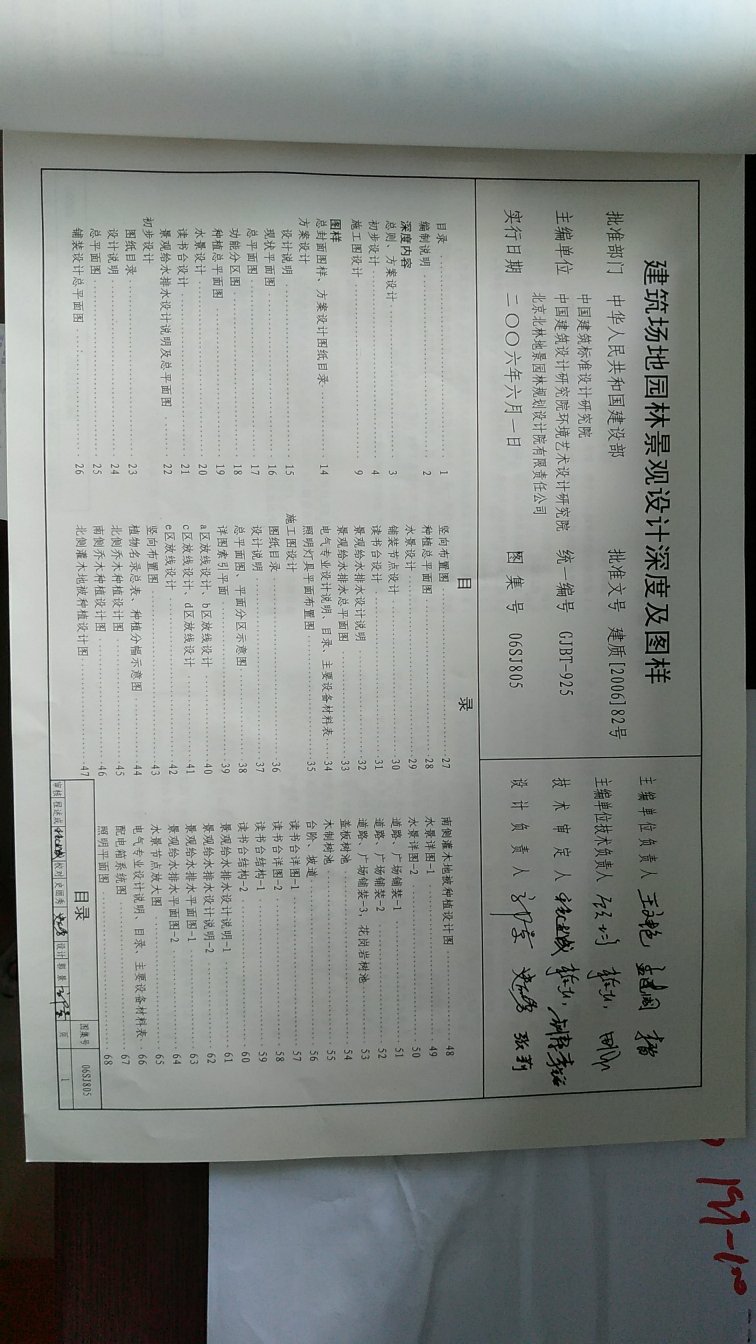 建筑场地园林景观设计深度及图样
批准部门 中华人民共和国建设部 批准文号 建质[2006]82号
主编单位 中国建筑标准设计研究院
中国建筑设计研究院环境艺术设计研究院
北京北林地景园林规划设计院有限责任公司
统一编号 GJBT-925
实行日期 二〇〇六年六月一日 图集号 06SJ805
主编单位负责人
主编单位技术负责人
技术审定人
设计负责人
目 录
目录 1
编制说明 2
深度内容
总则、方案设计 3
初步设计 4
施工图设计 9
图样
总封面图样、方案设计图纸目录 14
方案设计
设计说明 15
现状平面图 16
总平面图 17
功能分区图 18
种植总平面图 19
水景设计 20
读书台设计 21
景观给水排水设计说明及总平面图 22
初步设计
图纸目录 23
设计说明 24
总平面图 25
铺装设计总平面图 26
竖向布置图 27
种植总平面图 28
水景设计 29
铺装节点设计 30
读书台设计 31
景观给水排水设计说明 32
景观给水排水总平面图 33
电气专业设计说明、目录、主要设备材料表 34
照明灯具平面布置图 35
施工图设计
图纸目录 36
设计说明 37
总平面图、平面分区示意图 38
详图索引平面 39
a区放线设计、b区放线设计 40
c区放线设计、d区放线设计 41
e区放线设计 42
竖向布置图 43
植物名录总表、种植分幅示意图 44
北侧乔木种植设计图 45
南侧乔木种植设计图 46
北侧灌木地被种植设计图 47
南侧灌木地被种植设计图 48
水景详图-1 49
水景详图-2 50
道路、广场铺装-1 51
道路、广场铺装-2 52
道路、广场铺装-3、花岗岩树池 53
盖板树池 54
木制树池 55
台阶、坡道 56
读书台详图-1 57
读书台详图-2 58
读书台结构-1 59
读书台结构-2 60
景观给水排水设计说明-1 61
景观给水排水设计说明-2 62
景观给水排水平面图-1 63
景观给水排水平面图-2 64
水景节点放大图 65
电气专业设计说明、目录、主要设备材料表 66
配电箱系统图 67
照明平面图 68
目录 图集号 06SJ805
审核 程述成 校对 史丽秀 设计 郭景 页 1
199-100